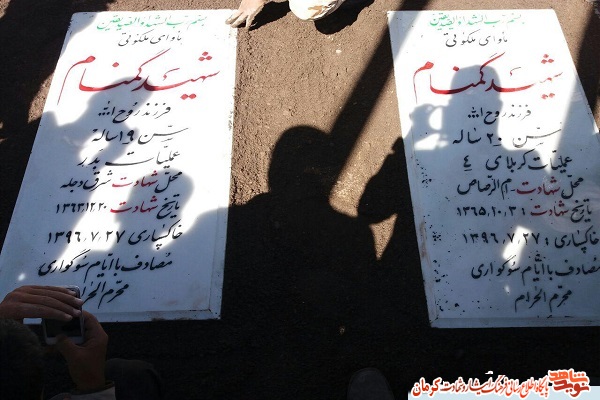 بسم رب الشهداء و الصدیقین
بانوای ملکوتی
شهید گمنام
فرزند روح الله
سن ۲۰ ساله
عملیات کربلای ٤
محل شهادت - ام الرصاص
تاریخ شهادت ۱۳۶۵٫۱۰٫۳
خاکسپاری ۱۳۹۶٫۷٫۲۷
مصادف با ایام سوگواری
محرم الحرام
بسم رب الشهداء و الصدیقین
بانوای ملکوتی
شهید گمنام
فرزند روح الله
سن ۱۹ ساله
عملیات بدر
محل شهادت شرق دجله
تاریخ شهادت ۱۳۶۳٫۱۲٫۲۰
خاکسپاری ۱۳۹۶٫۷٫۲۷
مصادف با ایام سوگواری
محرم الحرام
نوید شاهد
پایگاه اطلاع رسانی فرهنگ ایثار و شهادت کرمان